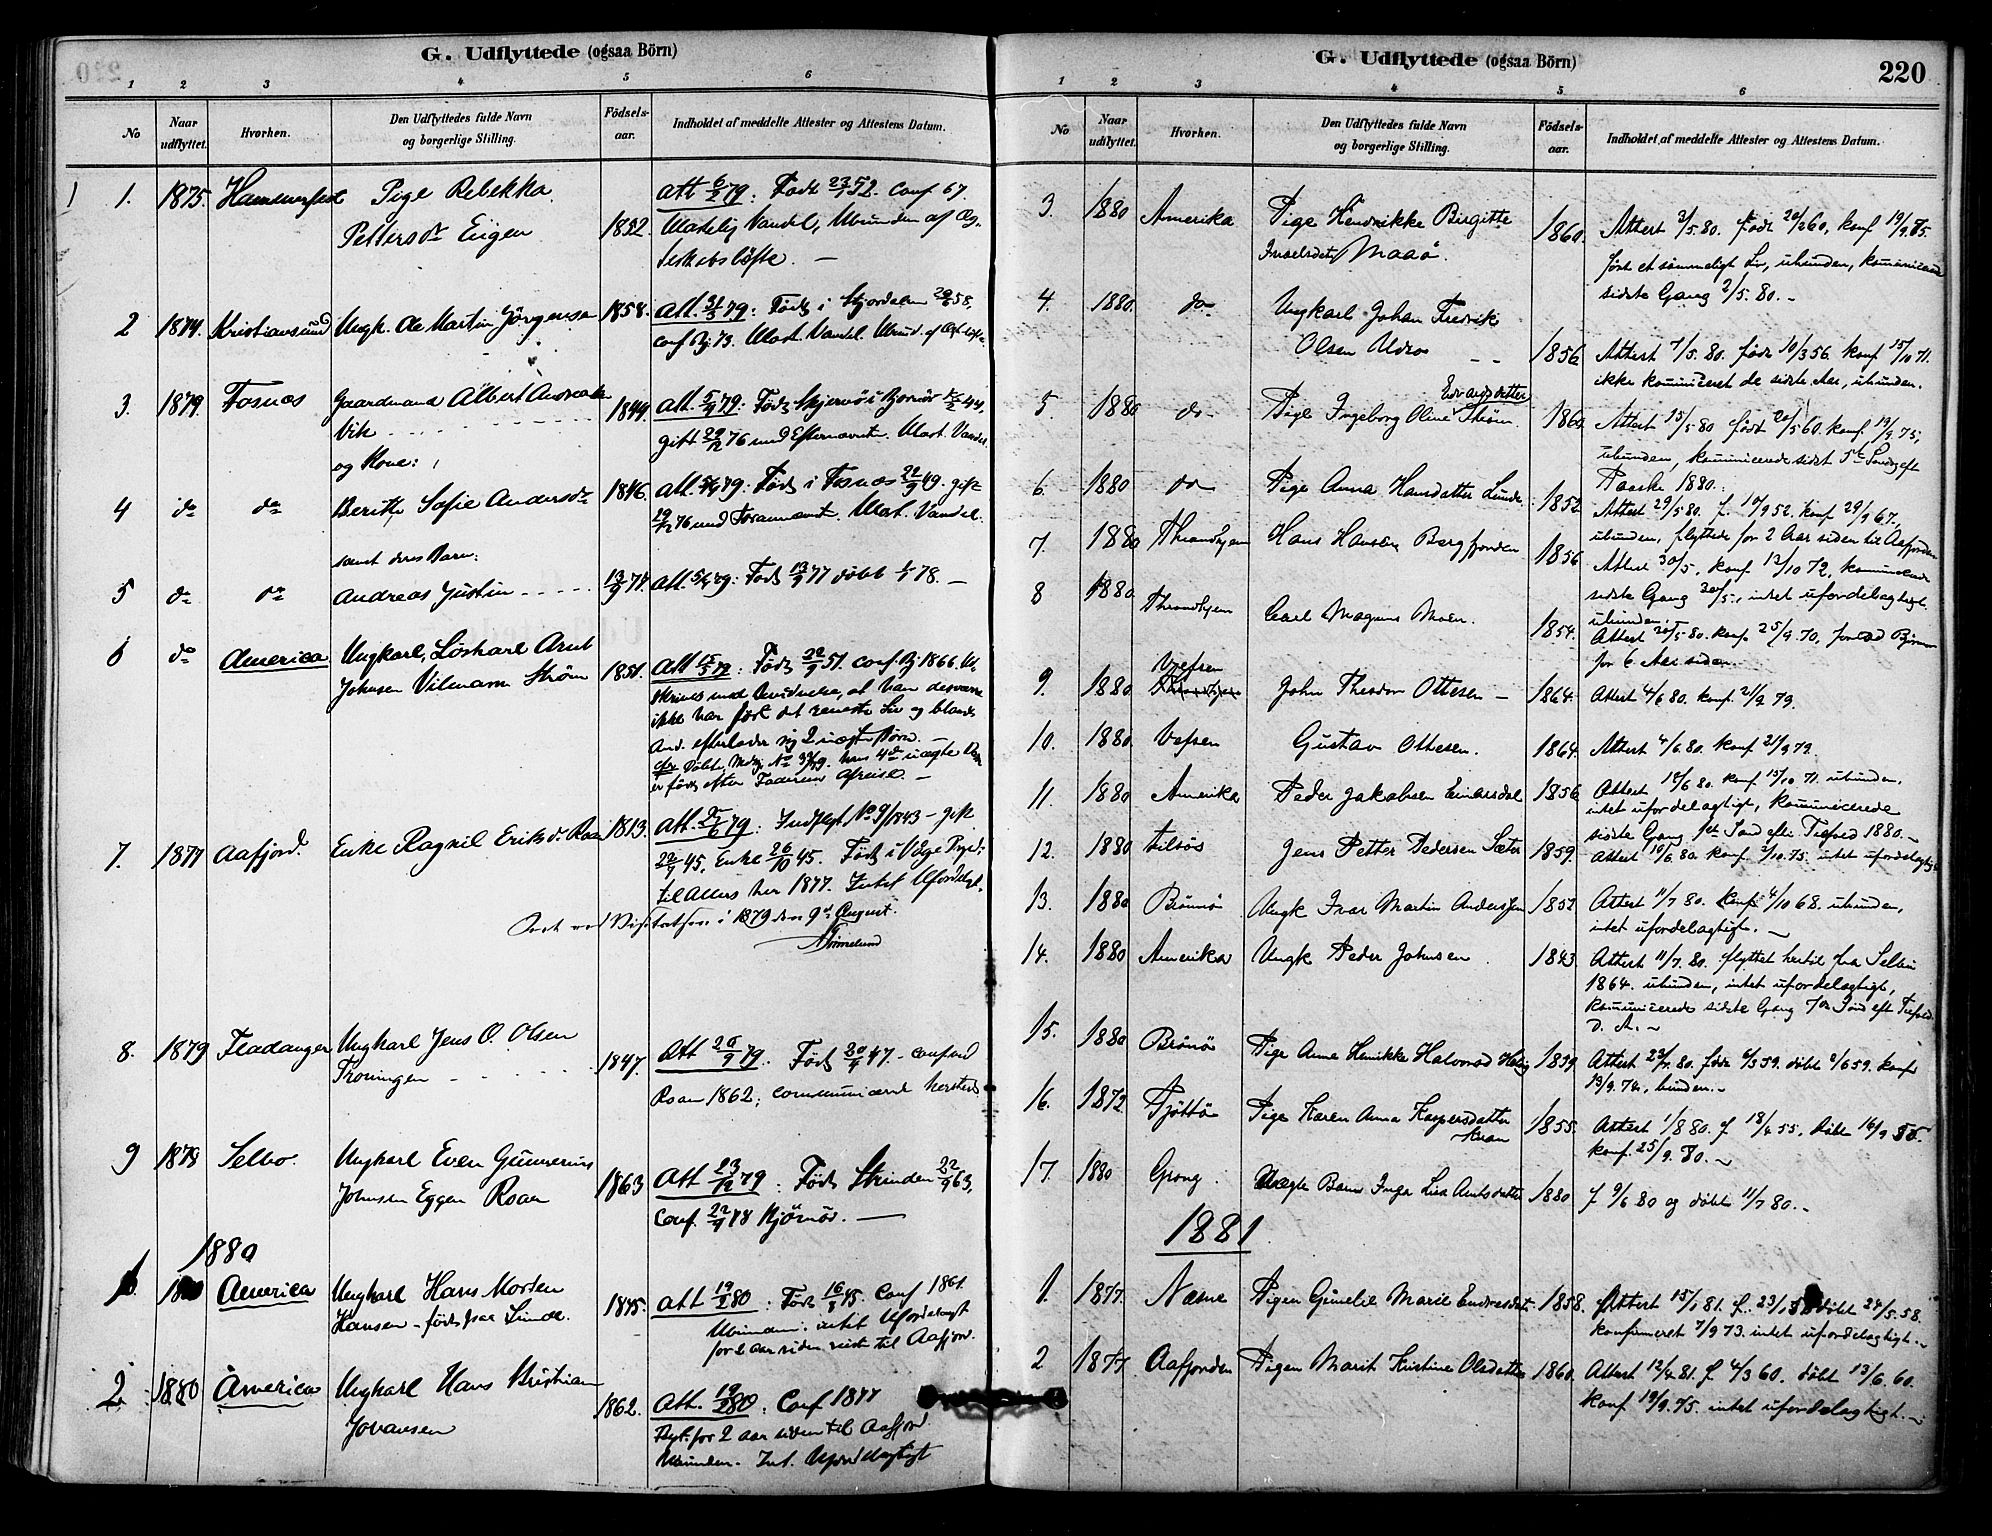 G. Udflyttede (ogsaa Börn)
1 2 3 4 5 6
No
Naar udflyttet.
Hvorhen.
Den Udflyttedes fulde Navn
og borgerlige Stilling.
Födsels-
aar.
Indholdet af meddelte Attester og Attestens Datum.
1. 1875. Hammerfest Pige Rebekka
Petters dr Eiigen 1852.
Att 6/2 79: Födt 23/1 52. Conf 67.
Sædelig Vandel, Ubunden af Æg-
teskabslöfte. —
2 1874. Kristiansund Ungk. Ole Martin Jörgensen 1858.
Att. 31/3 79: Födt i Stjordalen 29/6 58,
conf Bj. 73.
3. 1879. Fosnæs Gaardmand Albert Andreas
Vik 1844.
og Kone:
Att. 5/4 79: Födt Skjervö i Bjornör 44,
gift 29/12 76 med Efternævnte. Vandel
4 do do Berith Sofie Andersdr 1846.
Att. 5/4 79: Födt i Fosnæs 22/9 49. gift
29/12 76 med Forannævnte. Vandel.
samt deres Barn:
5 do do Andreas Justin 13/9 77
Att. 5/4 79: Födt 13/9 77 döbt 1/1 78. —
6 do America Ungkarl, Löskarl Arnt
Johnsen Vilmann Ström 1851.
Att : Födt 22/9 51. Conf. Bj. 1866.
at han desværre
ikke har fört det reneste Liv og blandt
And. efterlader sig 2 uægte Börn. —
er födt efter Faderens Afreise. —
7. 1877 Aafjord. Enke Ragnil Eriks dr Roan 1813.
Att. 79: Indflyt No 9/1843 – gift
45, Enke 26/10 45. Födt i
til Alters her 1877. Intet Ufordelagt.
1879 den 9de August.
8. 1879 Fladanger Ungkarl Jens O. Olsen
Troningen 1847.
Att 20/9 79. Födt 30/4 47. – conford
Roan 1862; communicerede hersteds
9 1878 Selbo. Ungkarl Even Gunnerius
Johnsen Eggen Roan 1863
Att 23/12 79: Födt Strinden 22/9 63,
Conf. 22/9 78 Bjørnör. —
1880
1. America Ungkarl Hans Morten
Hansen – född paa Lunde. 1845.
Att 19/2 80: Födt 16/3 45 Conf 1861.
Ubunden. intet Ufordelagt
for 2 aar siden reist til Aafjord.
2 1880 America Ungkarl Hans Kristian
Jovansen 1862.
Att. 19/2 80: Conf 1877
Flyt. for 2 aar siden til Aafjord
Ubunden. Int. Ufordelagtigt
G. Udflyttede (ogsaa Börn)
220
1 2 3 4 5 6
No
Naar udflyttet.
Hvorhen.
Den Udflyttedes fulde Navn
og borgerlige Stilling.
Födsels-
aar.
Indholdet af meddelte Attester og Attestens Datum.
3. 1880 Amerika Pige Hendrikke Birgitte
Maaö. 1860.
Attest 3/5. 80. födt 20/2 60, konf 19/9. 75.
fört et sömmeligt Liv, ubunden, kommunicerede
sidste Gang 2/5. 80. –
4. 1880 do Ungkarl Johan Fredrik
Olsen Uldro 1856
Attest 7/5. 80. födt 10/3 56 konf 15/10 71.
ikke kommuniceret de sidste Aar, ubunden.
5. 1880 do Pige Ingeborg Oline Edvardsdatter Ström. 1860
Attest 15/5 80 födt 20/5 60. konf. 19/9. 75,
ubunden, kommunicerede sidst 5te Sönd. eft
Paaske 1880.
6. 1880 do Pige Anna Hansdatter Lunde 1852
Attest 29/5 80. f. 10/9 52. konf 29/9 67,
ubunden, flyttede for 2 Aar siden til Aafjorden
7. 1880 Throndhjem Hans Hansen Bergfjorden 1856
Attest 30/5. konf 13/10 72, kommunicerede
sidste Gang 30/5, intet ufordelagtigt.
ubunden.
8 1880. Throndhjem Carl Magnus Moen. 1854.
Attest 20/5 80. konf 25/9. 70, forlod Björnör
for 6 Aar siden.
9. 1880 Vefsen John Theodor Ottesen – 1864.
Attest 4/6 80. konf. 21/9 79.
10. 1880 Vefsen Gustav Ottesen. 1864.
Attest 4/6 80. konf 21/9 79.
11. 1880 Amerika Peder Jakobsen Einarsdal 1856
Attest 10/6 80. konf 15/10 71. ubunden,
intet ufordelagtigt, kommunicerede
sidste Gang 1st Sönd efter Trefold 1880. –
12. 1880 Jens Petter Pedersen Sæter 1859.
Attest 10/6 80. konf 3/10. 75. intet ufordelagtigt
13. 1880 Brönnö Ungk Ivar Martin Anderssen 1852
Attest 11/7 80. konf 4/10 68. ubunden,
intet ufordelagtigt. –
14. 1880 Amerika Ungk Peder Johnsen 1843.
Attest 11/7. 80. flyttet hertil fra Selbu
1864. ubunden, intet ufordelagtigt,
kommunicerede sidste Gang 7de Sönd eft Trefold.
D. A. –
15. 1880 Brönö Pige Anne Henrikke Halvorsd 1859.
Attest 23/7. 80. födt 59. döbt 9/6 59. konf
13/9. 74, bunden. –
16. 1872 Tjöttö Pige Karen Anna Kaspersdatter 1855.
Attest 1/8 80. f 18/4 55. döbt 16/9 55.
konf. 25/9. 70. –
17. 1880 Grong. Uægte Barn Inga Lisa Arntsdatter 1880
f 9/6 80 og döbt 11/7 80. –
1881
1. 1877. Næsne Pigen Gunelie Marie Endresdat. 1858.
Attest 15/1 81. f. 23/ döbt 24/5. 58.
konfirmeret 7/9 73. intet ufordelagtigt. –
2 1877. Aafjorden Pigen Marit Kristine Olsdatter 1860
Attest 12/4 81. f 4/3 60. döbt 13/6. 60.
konf 19/9. 75. intet ufordelagtigt. –